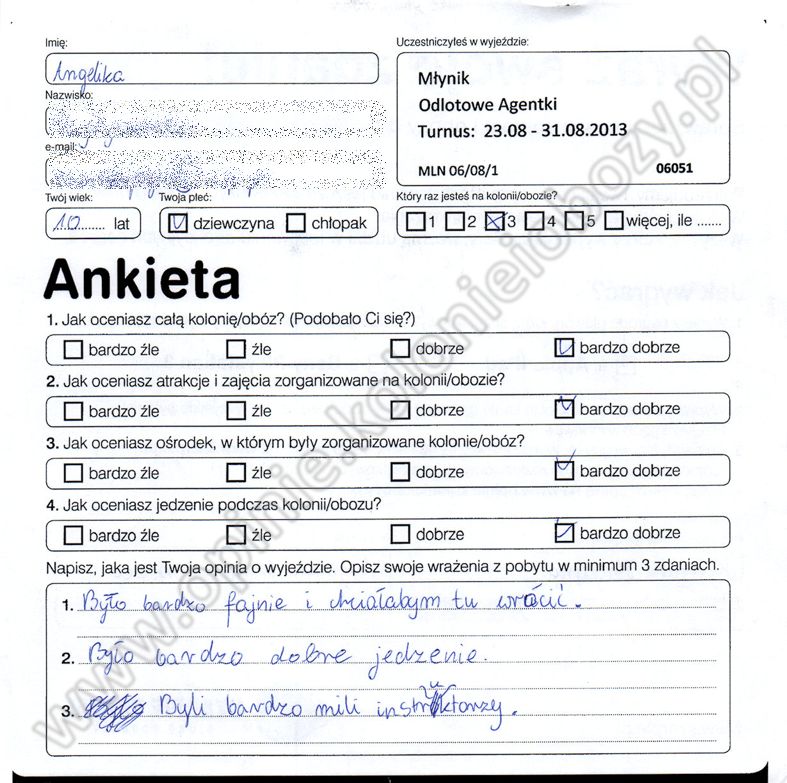 Imię:
Angelika
Nazwisko:
e-mail:
Twój wiek:
10 lat
Twoja płeć:
dziewczyna chłopak
Uczestniczyłeś w wyjeździe:
Młynik
Odlotowe Agentki
Turnus: 23.08 - 31.08.2013
MLN 06/08/1 06051
Który raz jesteś na kolonii/obozie?
1 2 3 4 5 więcej, ile .......
Ankieta
1. Jak oceniasz całą kolonię/obóz? (Podobało Ci się?)
bardzo źle źle dobrze bardzo dobrze
2. Jak oceniasz atrakcje i zajęcia zorganizowane na kolonii/obozie?
bardzo źle źle dobrze bardzo dobrze
3. Jak oceniasz ośrodek, w którym były zorganizowane kolonie/obóz?
bardzo źle źle dobrze bardzo dobrze
4. Jak oceniasz jedzenie podczas kolonii/obozu?
bardzo źle źle dobrze bardzo dobrze
Napisz, jaka jest Twoja opinia o wyjeździe. Opisz swoje wrażenia z pobytu w minimum 3 zdaniach.
1. Było bardzo fajnie i chciałabym tu wrócić.
2. Było bardzo dobre jedzenie.
3. Byli bardzo mili instruktorzy.
www.opinie.kolonieiobozy.pl